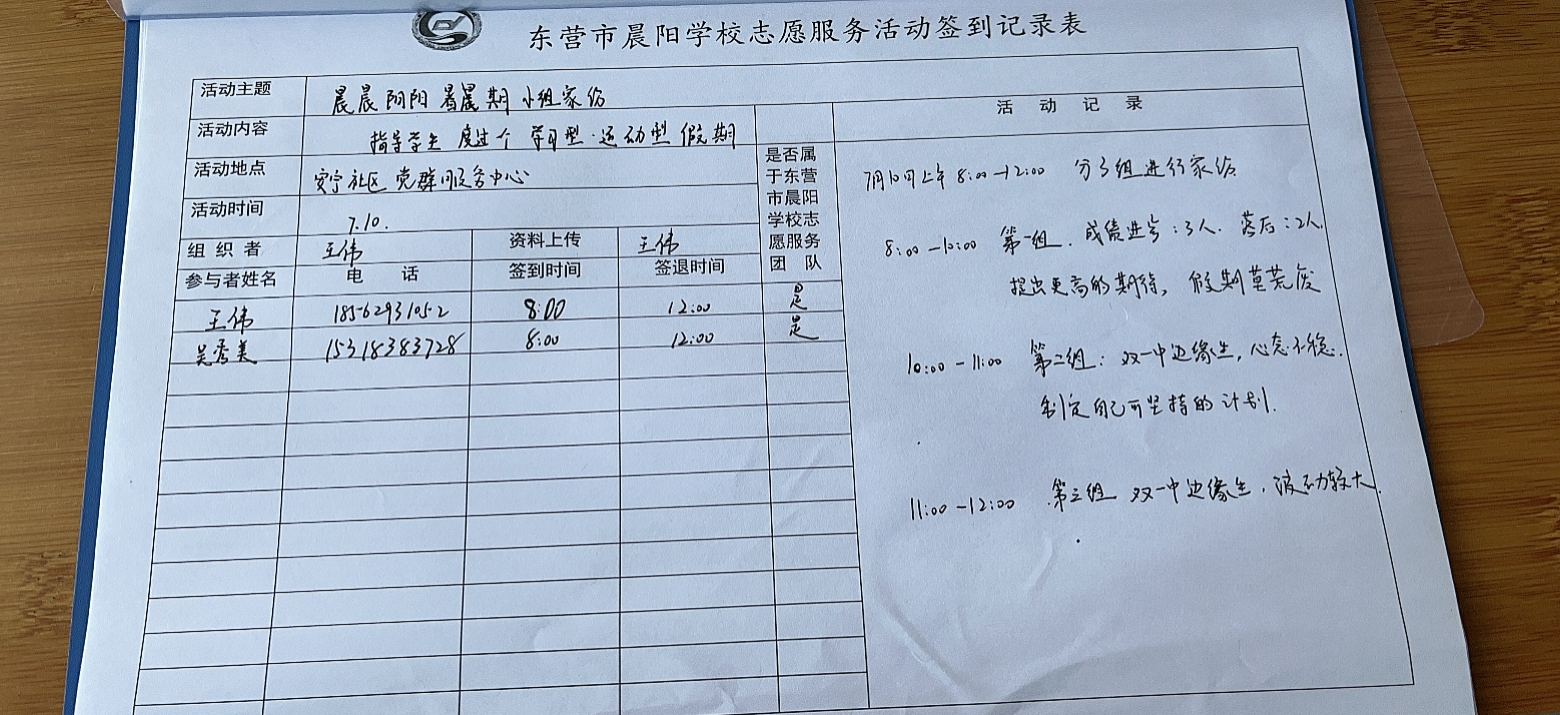 东营市晨阳学校志愿服务活动签到记录表
活动主题 晨晨阳阳 暑期小组家访
活动内容 指导学生 度过个 学习型·运动型 假期
活动地点 安宁社区 党群服务中心
活动时间 7.10.
组织者 王伟 资料上传 王伟
参与者姓名 电话 签到时间 签退时间 是否属于东营市晨阳学校志愿服务团队
王伟 18562931052 8:00 12:00 是
吴秀美 15318383728 8:00 12:00 是
活动记录
7月10日上午 8:00-12:00 分小组进行家访
8:00-10:00 第一组. 成绩进步:3人. 落后:2人.
提出更高的期待, 假期莫荒废
10:00-11:00 第二组: 双一中边缘生, 心态不稳.
制定自己可坚持的计划.
11:00-12:00 第三组 双一中边缘生, 波动较大.